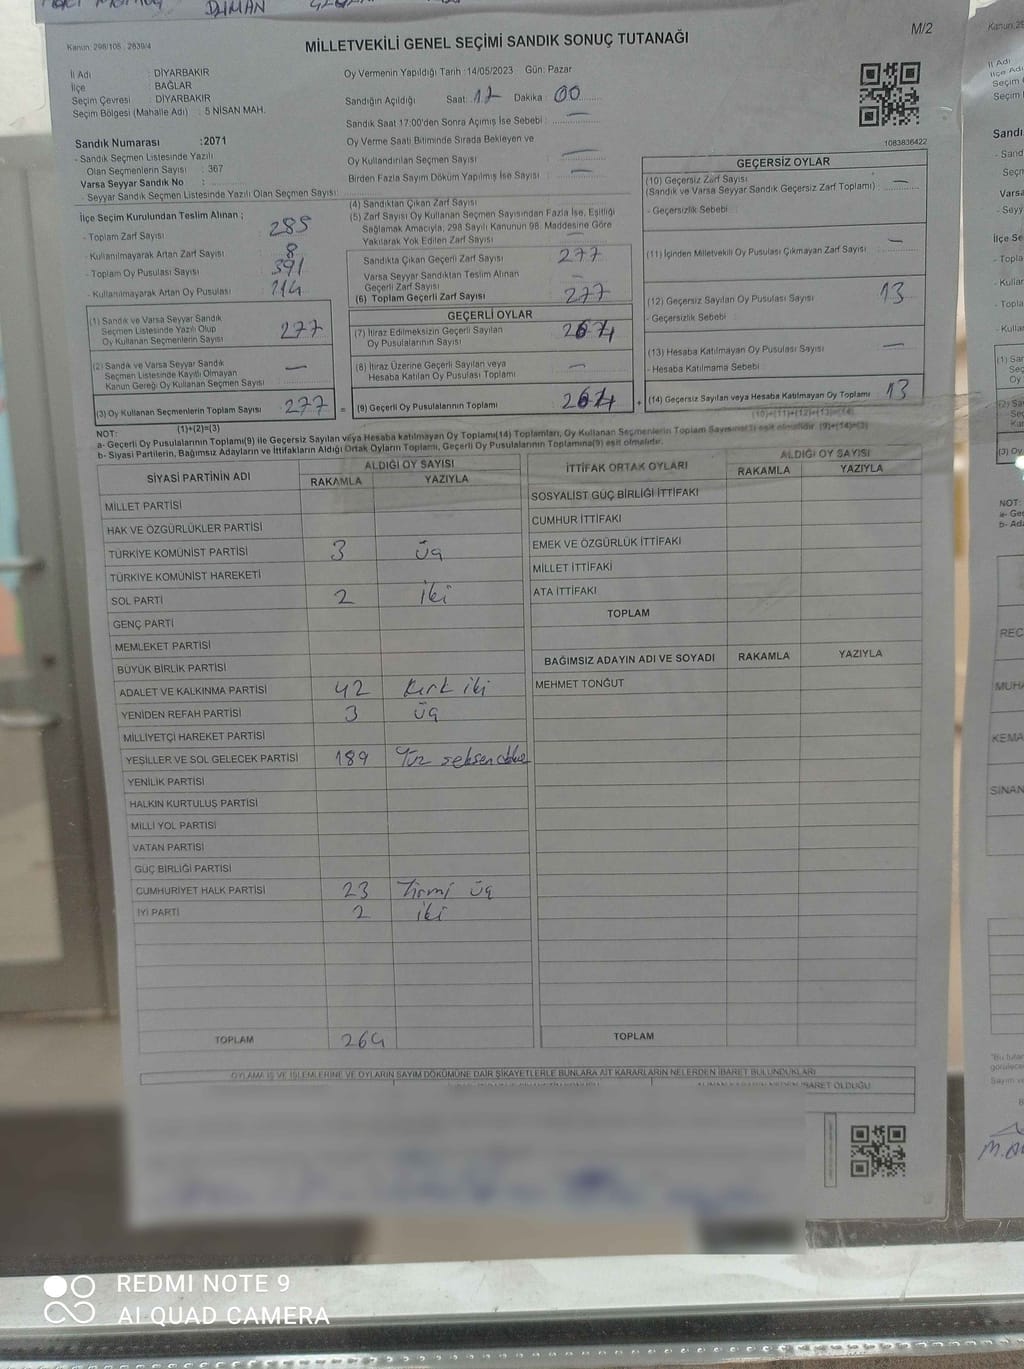 DUMAN
Kanun: 298/105 , 2839/4
MİLLETVEKİLİ GENEL SEÇİMİ SANDIK SONUÇ TUTANAĞI
M/2
İl Adı : DİYARBAKIR
İlçe : BAĞLAR
Seçim Çevresi : DİYARBAKIR
Seçim Bölgesi (Mahalle Adı) : 5 NİSAN MAH.
Oy Vermenin Yapıldığı Tarih :14/05/2023 Gün: Pazar
Sandığın Açıldığı Saat 17 Dakika 00
Sandık Saat 17:00'den Sonra Açımış İse Sebebi : —
Oy Verme Saati Bitiminde Sırada Bekleyen ve
Oy Kullandırılan Seçmen Sayısı : —
Birden Fazla Sayım Döküm Yapılmış İse Sayısı : —
1083836422
Sandık Numarası :2071
- Sandık Seçmen Listesinde Yazılı
Olan Seçmenlerin Sayısı : 367
Varsa Seyyar Sandık No :
Seyyar Sandık Seçmen Listesinde Yazılı Olan Seçmen Sayısı:
İlçe Seçim Kurulundan Teslim Alınan ;
- Toplam Zarf Sayısı : 285
- Kullanılmayarak Artan Zarf Sayısı : 8
- Toplam Oy Pusulası Sayısı : 391
- Kullanılmayarak Artan Oy Pusulası : 114
(1) Sandık ve Varsa Seyyar Sandık
Seçmen Listesinde Yazılı Olup
Oy Kullanan Seçmenlerin Sayısı : 277
(2) Sandık ve Varsa Seyyar Sandık
Seçmen Listesinde Kayıtlı Olmayan
Kanun Gereği Oy Kullanan Seçmen Sayısı : —
(3) Oy Kullanan Seçmenlerin Toplam Sayısı : 277
(1)+(2)=(3)
(4) Sandıktan Çıkan Zarf Sayısı :
(5) Zarf Sayısı Oy Kullanan Seçmen Sayısından Fazla İse, Eşitliği
Sağlamak Amacıyla; 298 Sayılı Kanunun 98. Maddesine Göre
Yakılarak Yok Edilen Zarf Sayısı : —
Sandıkta Çıkan Geçerli Zarf Sayısı : 277
Varsa Seyyar Sandıktan Teslim Alınan
Geçerli Zarf Sayısı : —
(6) Toplam Geçerli Zarf Sayısı : 277
GEÇERLİ OYLAR
(7) İtiraz Edilmeksizin Geçerli Sayılan
Oy Pusulalarının Sayısı : 264
(8) İtiraz Üzerine Geçerli Sayılan veya
Hesaba Katılan Oy Pusulası Toplamı : —
= (9) Geçerli Oy Pusulalarının Toplamı : 264
GEÇERSİZ OYLAR
(10) Geçersiz Zarf Sayısı
(Sandık ve Varsa Seyyar Sandık Geçersiz Zarf Toplamı) : —
- Geçersizlik Sebebi :
(11) İçinden Milletvekili Oy Pusulası Çıkmayan Zarf Sayısı : —
(12) Geçersiz Sayılan Oy Pusulası Sayısı : 13
- Geçersizlik Sebebi :
(13) Hesaba Katılmayan Oy Pusulası Sayısı : —
- Hesaba Katılmama Sebebi :
+ (14) Geçersiz Sayılan veya Hesaba Katılmayan Oy Toplamı : 13
(10)+(11)+(12)+(13)=(14)
NOT:
a- Geçerli Oy Pusulalarının Toplamı(9) ile Geçersiz Sayılan veya Hesaba katılmayan Oy Toplamı(14) Toplamları, Oy Kullanan Seçmenlerin Toplam Sayısına(3) eşit olmalıdır. (9)+(14)=(3)
b- Siyasi Partilerin, Bağımsız Adayların ve İttifakların Aldığı Ortak Oyların Toplamı, Geçerli Oy Pusulalarının Toplamına(9) eşit olmalıdır.
SİYASİ PARTİNİN ADI ALDIĞI OY SAYISI
RAKAMLA YAZIYLA
MİLLET PARTİSİ
HAK VE ÖZGÜRLÜKLER PARTİSİ
TÜRKİYE KOMÜNİST PARTİSİ 3 üç
TÜRKİYE KOMÜNİST HAREKETİ
SOL PARTİ 2 iki
GENÇ PARTİ
MEMLEKET PARTİSİ
BÜYÜK BİRLİK PARTİSİ
ADALET VE KALKINMA PARTİSİ 42 Kırk iki
YENİDEN REFAH PARTİSİ 3 üç
MİLLİYETÇİ HAREKET PARTİSİ
YEŞİLLER VE SOL GELECEK PARTİSİ 189 Yüz seksen dokuz
YENİLİK PARTİSİ
HALKIN KURTULUŞ PARTİSİ
MİLLİ YOL PARTİSİ
VATAN PARTİSİ
GÜÇ BİRLİĞİ PARTİSİ
CUMHURİYET HALK PARTİSİ 23 Yirmi üç
İYİ PARTİ 2 iki
TOPLAM 264
İTTİFAK ORTAK OYLARI ALDIĞI OY SAYISI
RAKAMLA YAZIYLA
SOSYALİST GÜÇ BİRLİĞİ İTTİFAKI
CUMHUR İTTİFAKI
EMEK VE ÖZGÜRLÜK İTTİFAKI
MİLLET İTTİFAKI
ATA İTTİFAKI
TOPLAM
BAĞIMSIZ ADAYIN ADI VE SOYADI RAKAMLA YAZIYLA
MEHMET TONĞUT
TOPLAM
OYLAMA İŞ VE İŞLEMLERİNE VE OYLARIN SAYIM DÖKÜMÜNE DAİR ŞİKAYETLERLE BUNLARA AİT KARARLARIN NELERDEN İBARET BULUNDUKLARI
İBARET OLDUĞU
Kanun: 29
İl Adı
İlçe Adı
Seçim
Seçim
Sandı
- Sand
Varsa
İlçe Se
NOT:
REC
MUHA
KEMA
SİNAN
"Bu tutan
görülece
Sayım v
REDMI NOTE 9
AI QUAD CAMERA